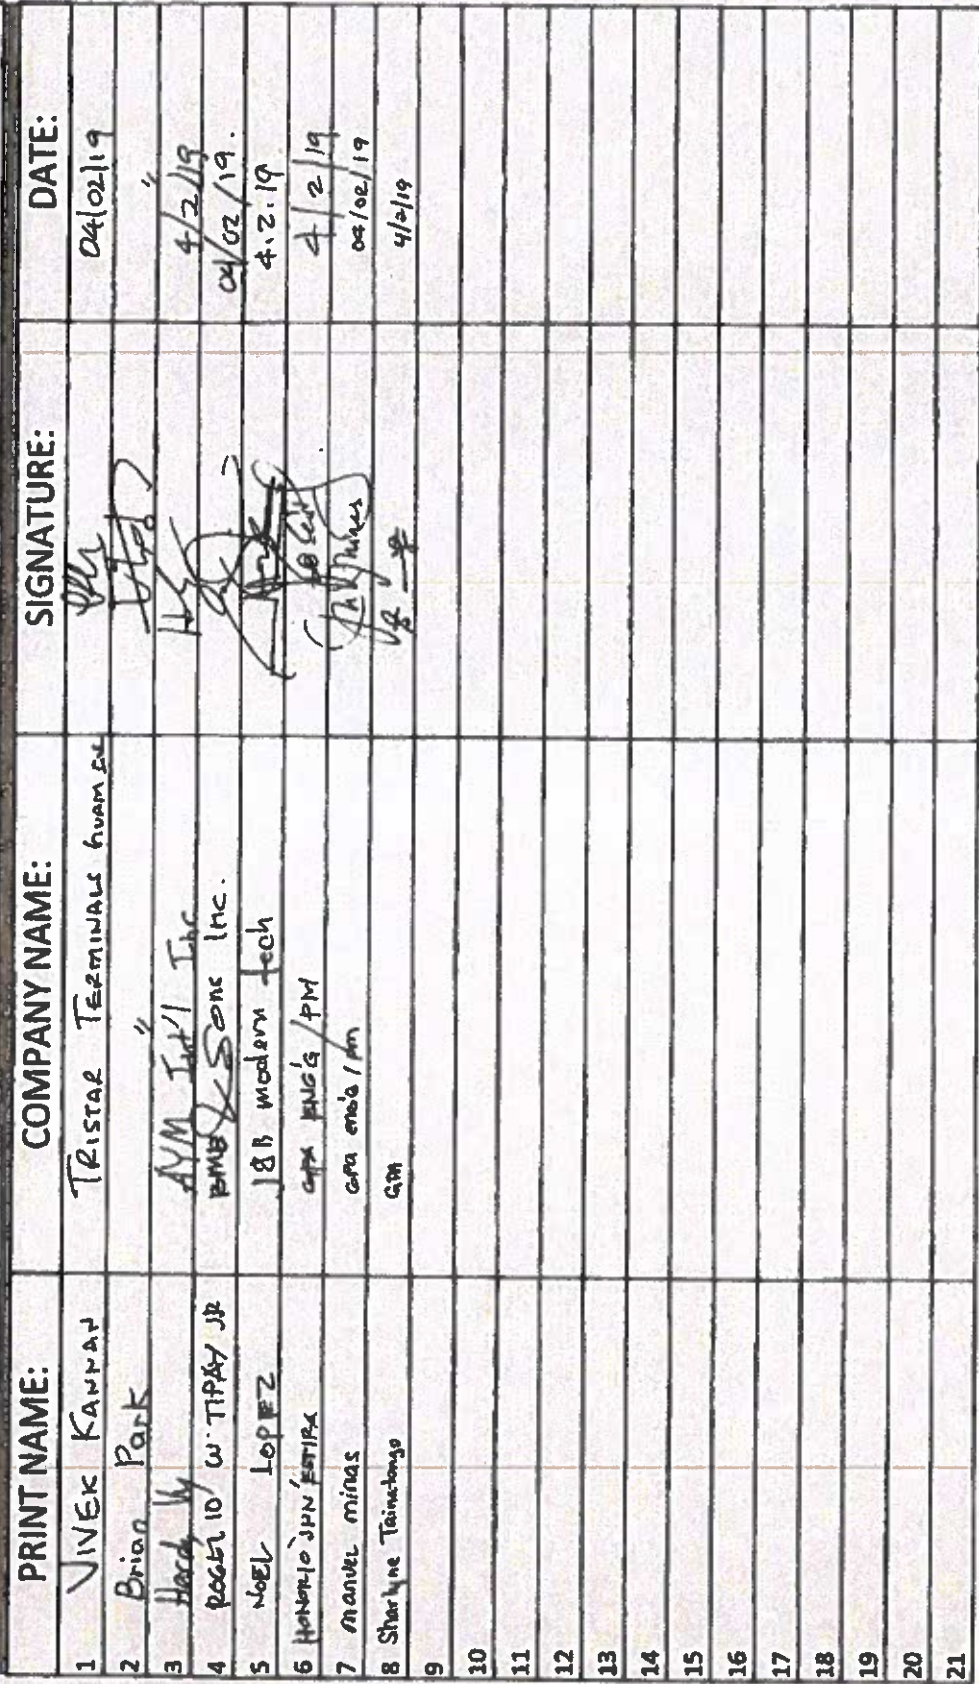 PRINT NAME: COMPANY NAME: SIGNATURE: DATE:
1 VIVEK KANNAN TRISTAR TERMINALS GUAM 04/02/19
2 Brian Park " "
3 Hardy Uy AYM Int'l Inc 4/2/19
4 ROGELIO W. TIPAY JR BME & Sons Inc. 04/02/19.
5 NOEL LOPEZ J&B modern tech 4.2.19
6 GPA ENG'G / PM 4/2/19
7 manuel minas GPA eng'g / pm 04/02/19
8 Sharlyne Taimatongo GPA 4/2/19
9
10
11
12
13
14
15
16
17
18
19
20
21